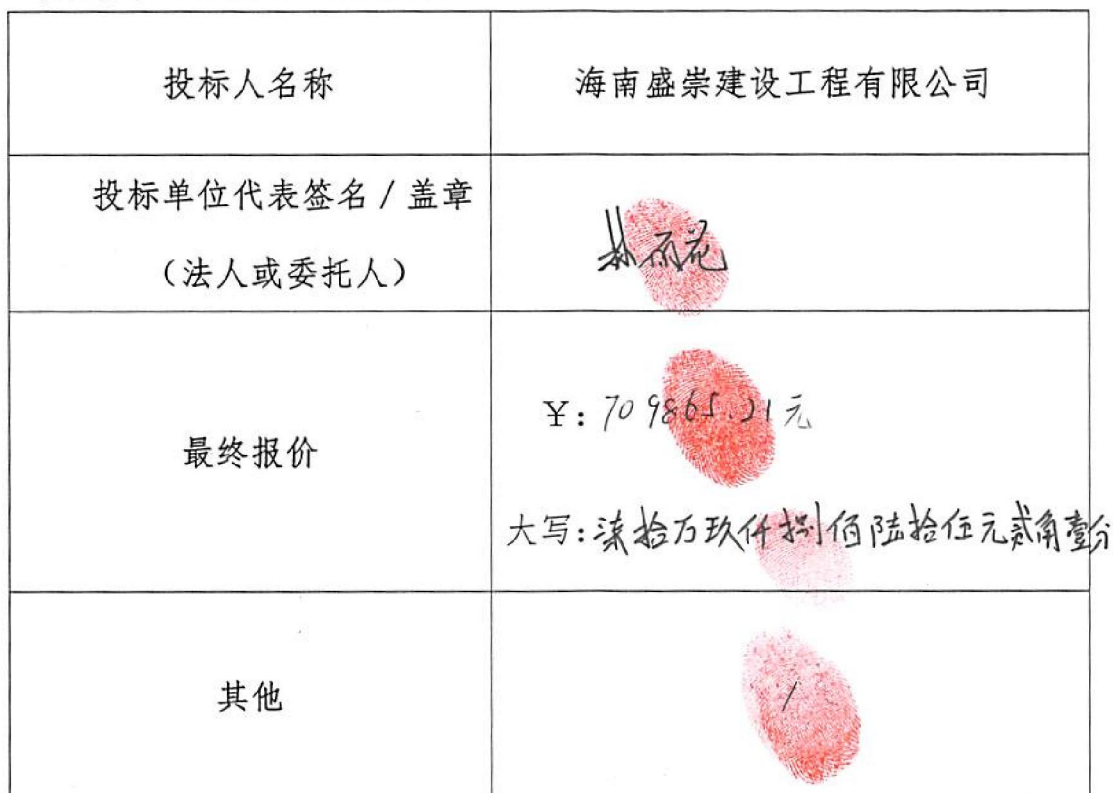 投标人名称
海南盛崇建设工程有限公司
投标单位代表签名／盖章
（法人或委托人）
林丽花
最终报价
￥：709865.21元
大写：柒拾万玖仟捌佰陆拾伍元贰角壹分
其他
/